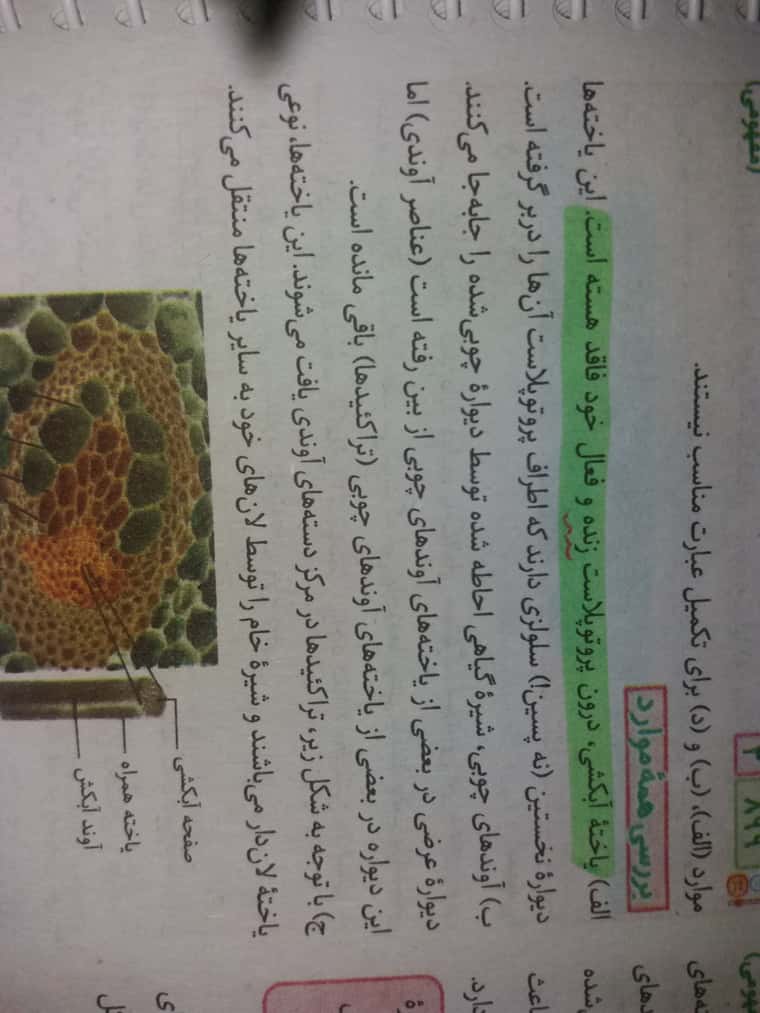 مفهومی)
۸۹۹ ۳
موارد (الف)، (ب) و (د) برای تکمیل عبارت مناسب نیستند.
بررسی همه موارد
الف) یاختهٔ آبکشی، درون پروتوپلاست زنده و فعال خود فاقد هسته است. این یاخته‌ها
دیوارهٔ نخستین (نه پسین!) سلولزی دارند که اطراف پروتوپلاست آن‌ها را دربر گرفته است.
ب) آوندهای چوبی، شیرهٔ گیاهی احاطه شده توسط دیوارهٔ چوبی‌شده را جابه‌جا می‌کنند.
دیوارهٔ عرضی در بعضی از یاخته‌های آوندهای چوبی از بین رفته است (عناصر آوندی) اما
این دیواره در بعضی از یاخته‌های آوندهای چوبی (تراکئیدها) باقی مانده است.
ج) با توجه به شکل زیر، تراکئیدها در مرکز دسته‌های آوندی یافت می‌شوند. این یاخته‌ها، نوعی
یاختهٔ لان‌دار می‌باشند و شیرهٔ خام را توسط لان‌های خود به سایر یاخته‌ها منتقل می‌کنند.
صفحه آبکشی
یاخته همراه
آوند آبکش